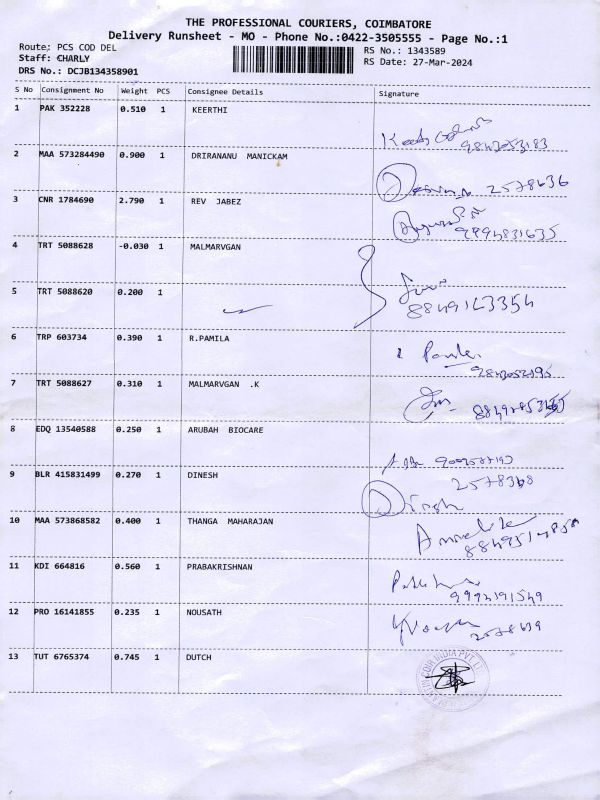 THE PROFESSIONAL COURIERS, COIMBATORE
Delivery Runsheet - MO - Phone No.:0422-3505555 - Page No.:1
Route: PCS COD DEL
Staff: CHARLY
DRS No.: DCJB134358901
RS No.: 1343589
RS Date: 27-Mar-2024
S No Consignment No Weight PCS Consignee Details Signature
1 PAK 352228 0.510 1 KEERTHI
2 MAA 573284490 0.900 1 DRIRANANU MANICKAM
2578636
3 CNR 1784690 2.790 1 REV JABEZ
9994831635
4 TRT 5088628 -0.030 1 MALMARVGAN
5 TRT 5088620 0.200 1
6 TRP 603734 0.390 1 R.PAMILA
7 TRT 5088627 0.310 1 MALMARVGAN .K
8 EDQ 13540588 0.250 1 ARUBAH BIOCARE
9 BLR 415831499 0.270 1 DINESH
10 MAA 573868582 0.400 1 THANGA MAHARAJAN
11 KDI 664816 0.560 1 PRABAKRISHNAN
12 PRO 16141855 0.235 1 NOUSATH
13 TUT 6765374 0.745 1 DUTCH